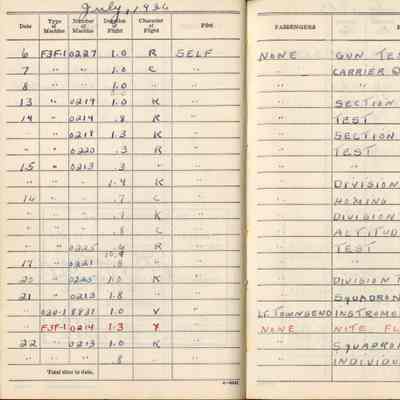 July, 1936
Date Type of Machine Number of Machine Duration of Flight Character of Flight Pilot PASSENGERS
6 F3F-1 0227 1.0 R SELF NONE GUN TES
7 " " 1.0 C " " CARRIER
8 " " 1.0 " " " "
13 " 0219 1.0 K " SECTION
14 " 0214 .8 R " TEST
" " 0218 1.3 K " SECTION
" " 0220 .3 R " TEST
15 " 0213 .3 " " "
" " " 1.4 K " DIVISION
16 " " .7 C " HOMING
" " " .9 K " DIVISION
" " " .8 C " ALTITUD
" " 0225 .4 R " TEST
10.9
17 " 0221 .8 " " "
20 " 0225 1.0 K " DIVISION
21 " 0213 1.8 " " SQUADRON
" O2U-1 8831 1.0 V " LT. TOWNSEND INSTRUME
" F3F-1 0214 1.3 Y " NONE NITE FL
22 " 0213 1.0 K " " SQUADRON
" " " .8 " " INDIVIDU
Total time to date,